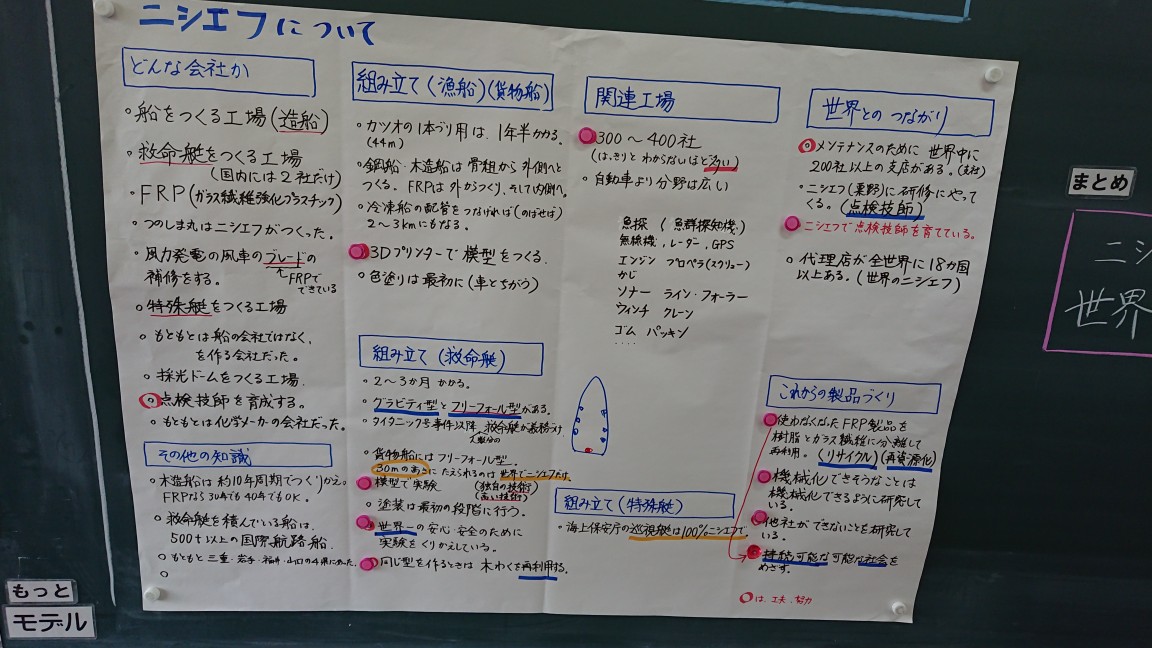 ニシエフについて
どんな会社か
○船をつくる工場(造船)
○救命艇をつくる工場
(国内には2社だけ)
○FRP(ガラス繊維強化プラスチック)
○つのしま丸はニシエフがつくった。
○風力発電の風車のブレードの
補修をする。
↑FRPで
できている
○特殊艇をつくる工場
○もともとは船の会社ではなく、
を作る会社だった。
○採光ドームをつくる工場
○点検技師を育成する。
○もともとは化学メーカーの会社だった。
その他の知識
○木造船は約10年周期でつくりかえ。
FRPなら30年でも40年でもOK。
○救命艇を積んでいる船は、
500t以上の国際航路船。
○もともと三重・岩手・福井・山口の4県にあった。
○
組み立て(漁船)(貨物船)
○カツオの1本づり用は、1年半かかる。
(44m)
○鋼船・木造船は骨組から外側へと
つくる。FRPは外からつくり、そして内側へ。
○冷凍船の配管をつなければ(のばせば)
2~3kmにもなる。
○3Dプリンターで模型をつくる。
○色塗りは最初に(車とちがう)
組み立て(救命艇)
○2~3か月かかる。
○グラビティ型とフリーフォール型がある。
○タイタニック号事件以降、救命艇が義務づけ
人数分の
○貨物船にはフリーフォール型
30mの高さにたえられるのは世界でニシエフだけ。
○模型で実験
(独自の技術)
(高い技術)
○塗装は最初の段階に行う。
○世界一の安心・安全のために
実験をくりかえしている。
○同じ型を作るときは木わくを再利用する。
関連工場
○300~400社
(はっきりとわからないほど多い)
○自動車より分野は広い
魚探(魚群探知機)
無線機、レーダー、GPS
エンジン プロペラ(スクリュー)
かじ
ソナー ライン・フォーラー
ウィンチ クレーン
ゴム パッキン
....
組み立て(特殊艇)
○海上保安庁の巡視艇は100%ニシエフで。
世界とのつながり
○メンテナンスのために世界中に
200社以上の支店がある。(支社)
○ニシエフ(粟野)に研修にやって
くる。(点検技師)
○ニシエフで点検技師を育てている。
○代理店が全世界に18か国
以上ある。(世界のニシエフ)
これからの製品づくり
○使わなくなったFRP製品を
樹脂とガラス繊維に分離して
再利用。(リサイクル)(再資源化)
○機械化できそうなことは
機械化できるように研究して
いる。
○他社ができないことを研究して
いる。
○持続可能な可能な社会を
めざす。
○は、工夫・努力
まとめ
ニシ
世界
もっと
モデル